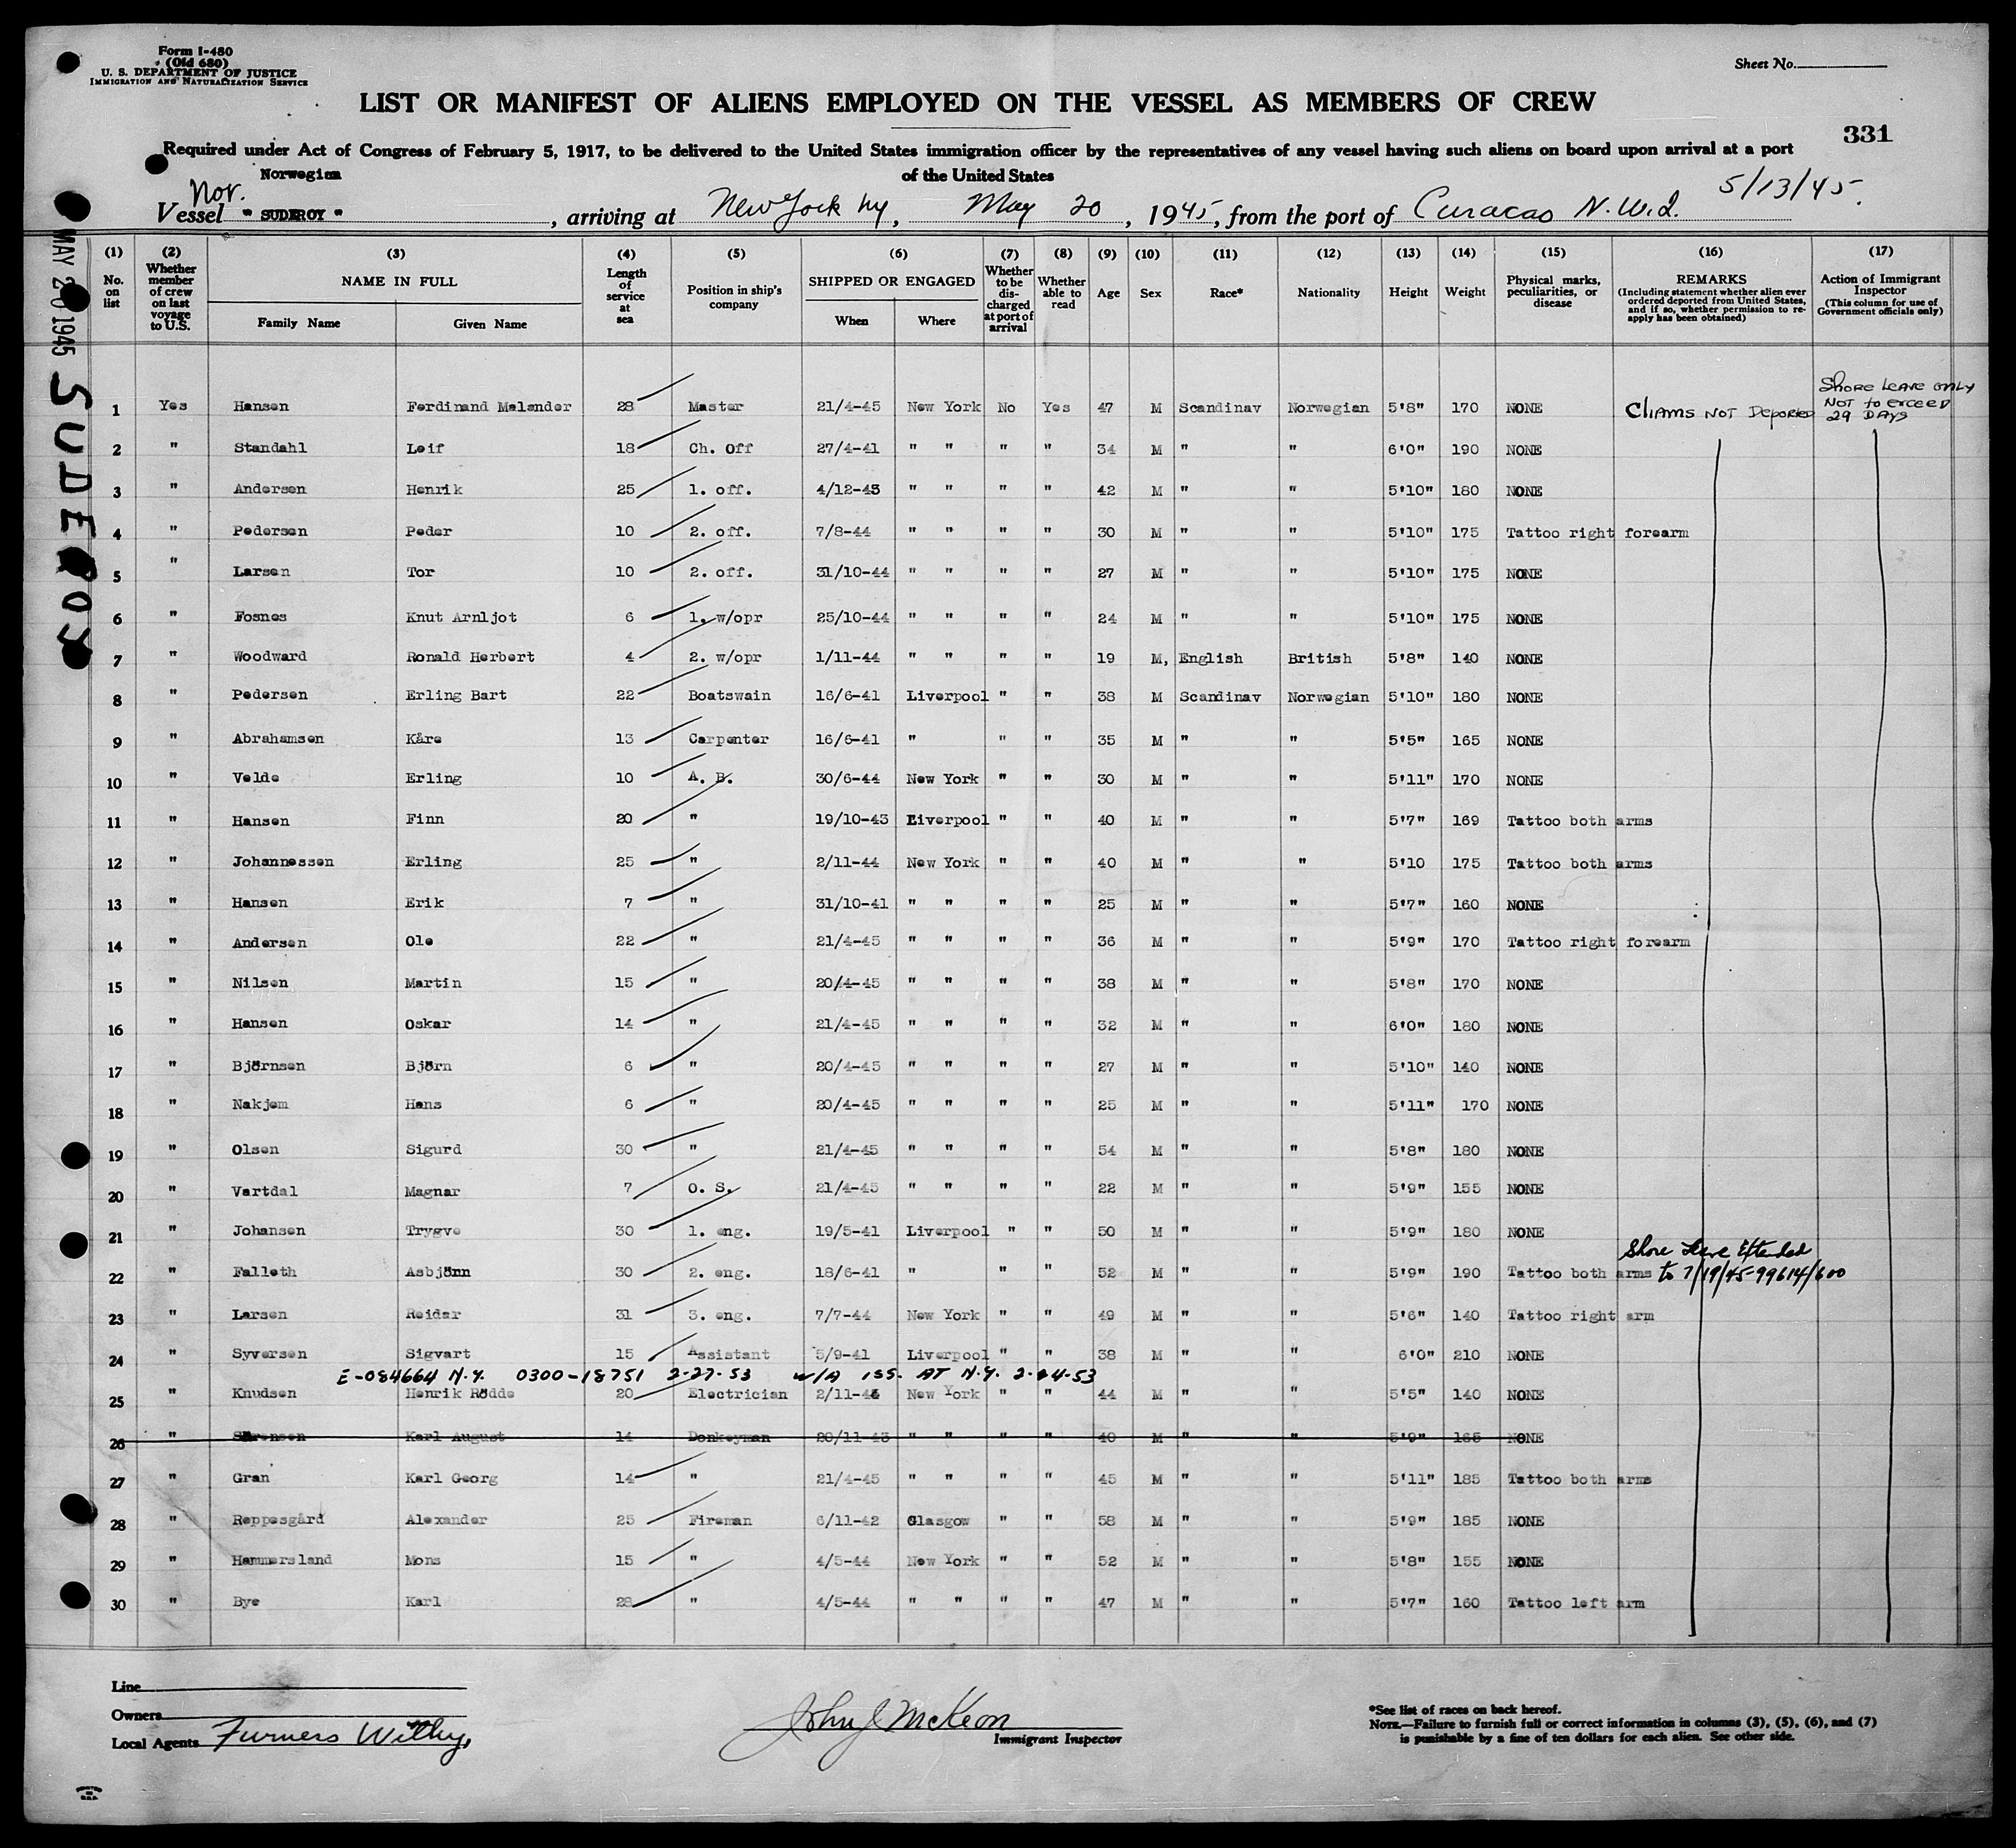 Form I-480
(Old 680)
U. S. DEPARTMENT OF JUSTICE
IMMIGRATION AND NATURALIZATION SERVICE
Sheet No.
LIST OR MANIFEST OF ALIENS EMPLOYED ON THE VESSEL AS MEMBERS OF CREW
331
Required under Act of Congress of February 5, 1917, to be delivered to the United States immigration officer by the representatives of any vessel having such aliens on board upon arrival at a port
of the United States
Norwegian
Nor.
5/13/45.
Vessel " SUDEROY ", arriving at New York NY, May 20, 1945, from the port of Curacao N.W.I.
MAY 20 1945 SUDEROY
(1) No. on list (2) Whether member of crew on last voyage to U.S. (3) NAME IN FULL Family Name Given Name (4) Length of service at sea (5) Position in ship's company (6) SHIPPED OR ENGAGED When Where (7) Whether to be discharged at port of arrival (8) Whether able to read (9) Age (10) Sex (11) Race* (12) Nationality (13) Height (14) Weight (15) Physical marks, peculiarities, or disease (16) REMARKS (Including statement whether alien ever ordered deported from United States, and if so, whether permission to reapply has been obtained) (17) Action of Immigrant Inspector (This column for use of Government officials only)
1 Yes Hansen Ferdinand Melander 28 Master 21/4-45 New York No Yes 47 M Scandinav Norwegian 5'8" 170 NONE CliAMS NOT Deported Shore Leave only NOT to exceed 29 DAYS
2 " Standahl Leif 18 Ch. Off 27/4-41 " " " " 34 M " " 6'0" 190 NONE
3 " Andersen Henrik 25 1. off. 4/12-43 " " " " 42 M " " 5'10" 180 NONE
4 " Pedersen Peder 10 2. off. 7/8-44 " " " " 30 M " " 5'10" 175 Tattoo right forearm
5 " Larsen Tor 10 2. off. 31/10-44 " " " " 27 M " " 5'10" 175 NONE
6 " Fosnes Knut Arnljot 6 1. w/opr 25/10-44 " " " " 24 M " " 5'10" 175 NONE
7 " Woodward Ronald Herbert 4 2. w/opr 1/11-44 " " " " 19 M, English British 5'8" 140 NONE
8 " Pedersen Erling Bart 22 Boatswain 16/6-41 Liverpool " " 38 M Scandinav Norwegian 5'10" 180 NONE
9 " Abrahamsen Kåre 13 Carpenter 16/6-41 " " " 35 M " " 5'5" 165 NONE
10 " Velde Erling 10 A. B. 30/6-44 New York " " 30 M " " 5'11" 170 NONE
11 " Hansen Finn 20 " 19/10-43 Liverpool " " 40 M " " 5'7" 169 Tattoo both arms
12 " Johannessen Erling 25 " 2/11-44 New York " " 40 M " " 5'10 175 Tattoo both arms
13 " Hansen Erik 7 " 31/10-41 " " " " 25 M " " 5'7" 160 NONE
14 " Andersen Ole 22 " 21/4-45 " " " " 36 M " " 5'9" 170 Tattoo right forearm
15 " Nilsen Martin 15 " 20/4-45 " " " " 38 M " " 5'8" 170 NONE
16 " Hansen Oskar 14 " 21/4-45 " " " " 32 M " " 6'0" 180 NONE
17 " Björnsen Björn 6 " 20/4-45 " " " " 27 M " " 5'10" 140 NONE
18 " Nakjem Hans 6 " 20/4-45 " " " " 25 M " " 5'11" 170 NONE
19 " Olsen Sigurd 30 " 21/4-45 " " " " 54 M " " 5'8" 180 NONE
20 " Vartdal Magnar 7 O. S. 21/4-45 " " " " 22 M " " 5'9" 155 NONE
21 " Johansen Trygve 30 1. eng. 19/5-41 Liverpool " " 50 M " " 5'9" 180 NONE
Shore Leave Extended
22 " Falleth Asbjörn 30 2. eng. 18/6-41 " " " 52 M " " 5'9" 190 Tattoo both arms to 7/19/45-99614/600
23 " Larsen Reidar 31 3. eng. 7/7-44 New York " " 49 M " " 5'6" 140 Tattoo right arm
24 " Syversen Sigvart 15 Assistant 5/9-41 Liverpool " " 38 M " " 6'0" 210 NONE
E-084664 N.Y. 0300-18751 2-27-53 W/A ISS. AT N.Y. 2-24-53
25 " Knudsen Henrik Rödde 20 Electrician 2/11-43 New York " " 44 M " " 5'5" 140 NONE
26 " Sörensen Karl August 14 Donkeyman 20/11-43 " " " " 40 M " " 5'9" 165 NONE
27 " Gran Karl Georg 14 " 21/4-45 " " " " 45 M " " 5'11" 185 Tattoo both arms
28 " Reppesgård Alexander 25 Fireman 6/11-42 Glasgow " " 58 M " " 5'9" 185 NONE
29 " Hammersland Mons 15 " 4/5-44 New York " " 52 M " " 5'8" 155 NONE
30 " Bye Karl 28 " 4/5-44 " " " " 47 M " " 5'7" 160 Tattoo left arm
Line
Owners
Local Agents Furness Withy,
John J McKeon
Immigrant Inspector
*See list of races on back hereof.
NOTE.—Failure to furnish full or correct information in columns (3), (5), (6), and (7)
is punishable by a fine of ten dollars for each alien. See other side.